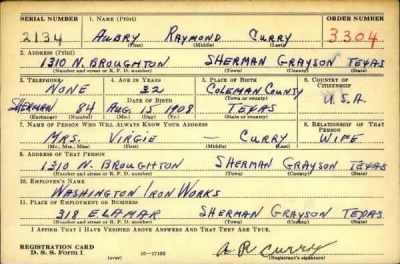 SERIAL NUMBER 1. NAME (Print) ORDER NUMBER
2134 AUBRY RAYMOND CURRY 3304
(First) (Middle) (Last)
2. ADDRESS (Print)
1310 N. BROUGHTON SHERMAN GRAYSON TEXAS
(Number and street or R. F. D. number) (Town) (County) (State)
3. TELEPHONE 4. AGE IN YEARS 5. PLACE OF BIRTH 6. COUNTRY OF CITIZENSHIP
NONE 32 COLEMAN COUNTY
(Town or county)
DATE OF BIRTH U.S.A.
SHERMAN 84 AUG 15 1908 TEXAS
(Exchange) (Number) (Mo.) (Day) (Yr.) (State or country)
7. NAME OF PERSON WHO WILL ALWAYS KNOW YOUR ADDRESS 8. RELATIONSHIP OF THAT PERSON
MRS. VIRGIE — CURRY WIFE
(Mr., Mrs., Miss) (First) (Middle) (Last)
9. ADDRESS OF THAT PERSON
1310 N. BROUGHTON SHERMAN GRAYSON TEXAS
(Number and street or R. F. D. number) (Town) (County) (State)
10. EMPLOYER'S NAME
WASHINGTON IRON WORKS
11. PLACE OF EMPLOYMENT OR BUSINESS
318 E LAMAR SHERMAN GRAYSON TEXAS
(Number and street or R. F. D. number) (Town) (County) (State)
I AFFIRM THAT I HAVE VERIFIED ABOVE ANSWERS AND THAT THEY ARE TRUE.
REGISTRATION CARD
D. S. S. Form 1 (over) 16—17105 A R Curry
(Registrant's signature)